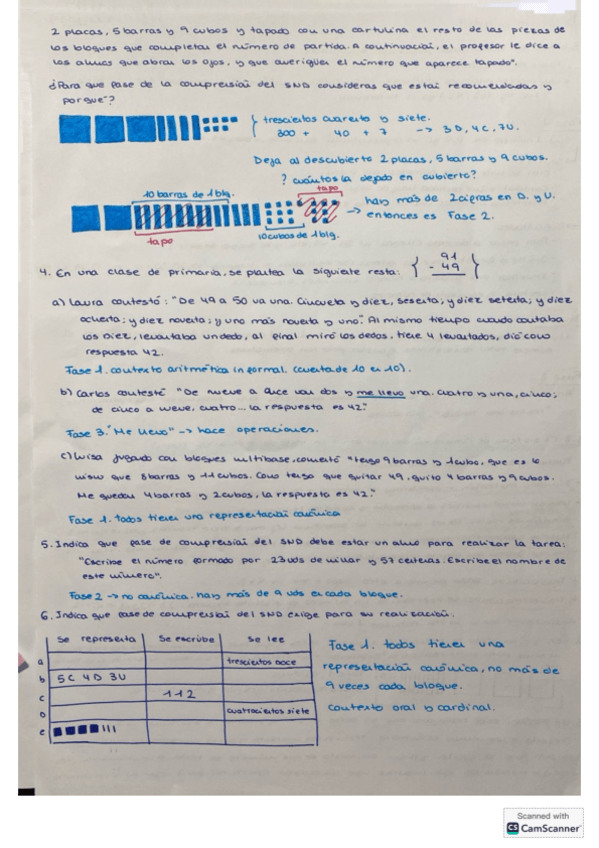 2 placas, 5 barras y 9 cubos y tapado con una cartulina el resto de las piezas de
los bloques que completan el número de partida. A continuación, el profesor le dice a
los alumnos que abran los ojos, y que averigüen el número que aparece tapado".
¿Para que fase de la comprensión del SND consideras que están recomendadas y
por que"?
trescientos cuarenta y siete.
300 + 40 + 7 → 3D, 4C, 7U.
Deja al descubierto 2 placas, 5 barras y 9 cubos.
? cuántos la dejado en cubierto?
10 barras de 1 blg.
tapo
hay más de 2 cifras en D. y U.
entonces es Fase 2.
tapo
10 cubos de 1 blg.
4. En una clase de primaria, se plantea la siguiente resta: { 91
- 49 }
a) Laura contestó: "De 49 a 50 va una. Cincuenta y diez, sesenta; y diez setenta; y diez
ochenta; y diez noventa; y uno más noventa y uno". Al mismo tiempo cuando contaba
los Diez, levantaba un dedo, al final miró los dedos, tiene 4 levantados, dió como
respuesta 42.
Fase 1. contexto aritmética informal. (cuenta de 10 en 10).
b) Carlos contestó "De nueve a once van dos y me llevo una. cuatro y una, cinco;
de cinco a nueve, cuatro... la respuesta es 42."
Fase 3. "Me llevo" → hace operaciones.
c) Luisa jugando con bloques multibase, comentó "tengo 9 barras y 1 cubo, que es lo
mismo que 8 barras y 11 cubos. Como tengo que quitar 49, quito 4 barras y 9 cubos.
Me quedan 4 barras y 2 cubos, la respuesta es 42."
Fase 1. todos tienen una representación canónica
5. Indica que fase de comprensión del SND debe estar un alumno para realizar la tarea:
"Escribe el número formado por 23 uds de millar y 57 centenas. Escribe el nombre de
este número".
Fase 2 → no canónica. hay más de 9 uds en cada bloque.
6. Indica que fase de comprensión del SND exige para su realización.
Se representa Se escribe Se lee
a trescientos doce
b 5C 4D 3U
c 112
D cuatrocientos siete
e
Fase 1. todos tienen una
representación canónica, no más de
9 veces cada bloque.
contexto oral y cardinal.
Scanned with
CS CamScanner